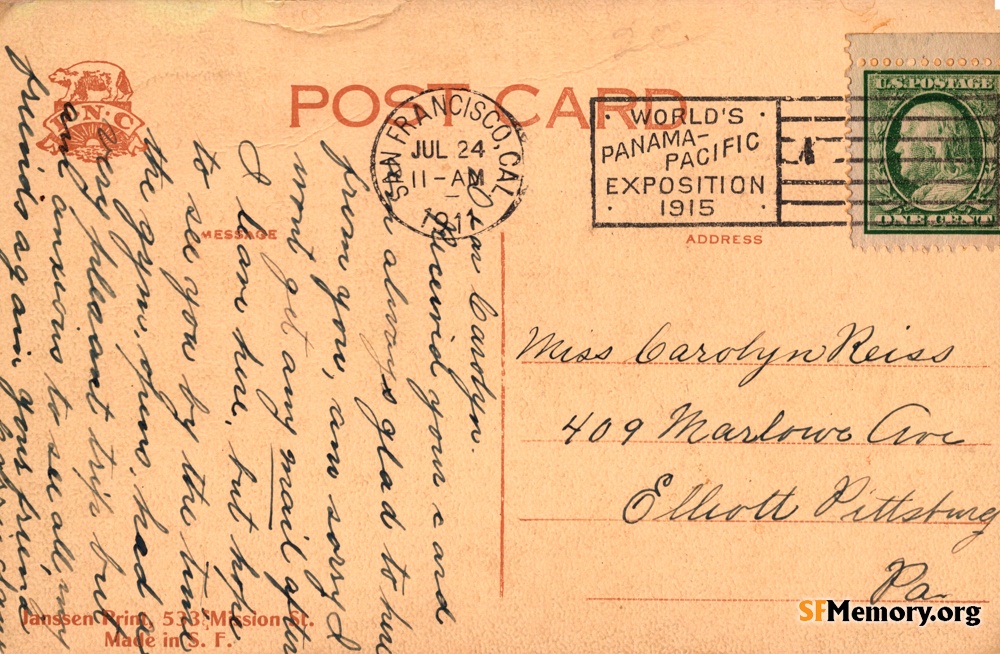 POST CARD
P·N·C
SAN FRANCISCO, CAL.
JUL 24
11-AM
1911
· WORLD'S ·
PANAMA-
PACIFIC
EXPOSITION
· 1915 ·
U.S. POSTAGE
ONE CENT
MESSAGE
ADDRESS
Dear Carolyn.
Received your card
am always glad to hear
from you, am sorry I
wont get any mail after
I leave here, but hope
to see you by the time
the gyms opens, had a
very pleasant trip but
am anxious to see all my
friends again your friend
Miss Carolyn Reiss
409 Marlowe Ave
Elliott Pittsburg
Pa.
Janssen Print, 533 Mission St.
Made in S. F.
SFMemory.org